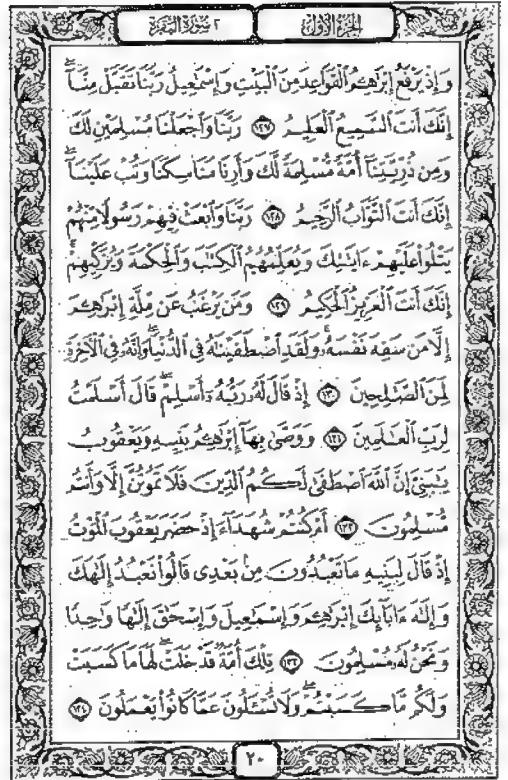 ٢ سُورَةُ البَقَرَة
الجُزْءُ الأَوَّلُ
وَإِذْ يَرْفَعُ إِبْرَٰهِـۧمُ ٱلْقَوَاعِدَ مِنَ ٱلْبَيْتِ وَإِسْمَـٰعِيلُ رَبَّنَا تَقَبَّلْ مِنَّآ ۖ
إِنَّكَ أَنتَ ٱلسَّمِيعُ ٱلْعَلِيمُ ١٢٧ رَبَّنَا وَٱجْعَلْنَا مُسْلِمَيْنِ لَكَ
وَمِن ذُرِّيَّتِنَآ أُمَّةً مُّسْلِمَةً لَّكَ وَأَرِنَا مَنَاسِكَنَا وَتُبْ عَلَيْنَآ ۖ
إِنَّكَ أَنتَ ٱلتَّوَّابُ ٱلرَّحِيمُ ١٢٨ رَبَّنَا وَٱبْعَثْ فِيهِمْ رَسُولًا مِّنْهُمْ
يَتْلُوا۟ عَلَيْهِمْ ءَايَـٰتِكَ وَيُعَلِّمُهُمُ ٱلْكِتَـٰبَ وَٱلْحِكْمَةَ وَيُزَكِّيهِمْ ۚ
إِنَّكَ أَنتَ ٱلْعَزِيزُ ٱلْحَكِيمُ ١٢٩ وَمَن يَرْغَبُ عَن مِّلَّةِ إِبْرَٰهِـۧمَ
إِلَّا مَن سَفِهَ نَفْسَهُۥ ۚ وَلَقَدِ ٱصْطَفَيْنَـٰهُ فِى ٱلدُّنْيَا ۖ وَإِنَّهُۥ فِى ٱلْـَٔاخِرَةِ
لَمِنَ ٱلصَّـٰلِحِينَ ١٣٠ إِذْ قَالَ لَهُۥ رَبُّهُۥٓ أَسْلِمْ ۖ قَالَ أَسْلَمْتُ
لِرَبِّ ٱلْعَـٰلَمِينَ ١٣١ وَوَصَّىٰ بِهَآ إِبْرَٰهِـۧمُ بَنِيهِ وَيَعْقُوبُ
يَـٰبَنِىَّ إِنَّ ٱللَّهَ ٱصْطَفَىٰ لَكُمُ ٱلدِّينَ فَلَا تَمُوتُنَّ إِلَّا وَأَنتُم
مُّسْلِمُونَ ١٣٢ أَمْ كُنتُمْ شُهَدَآءَ إِذْ حَضَرَ يَعْقُوبَ ٱلْمَوْتُ
إِذْ قَالَ لِبَنِيهِ مَا تَعْبُدُونَ مِنۢ بَعْدِى قَالُوا۟ نَعْبُدُ إِلَـٰهَكَ
وَإِلَـٰهَ ءَابَآئِكَ إِبْرَٰهِـۧمَ وَإِسْمَـٰعِيلَ وَإِسْحَـٰقَ إِلَـٰهًا وَٰحِدًا
وَنَحْنُ لَهُۥ مُسْلِمُونَ ١٣٣ تِلْكَ أُمَّةٌ قَدْ خَلَتْ ۖ لَهَا مَا كَسَبَتْ
وَلَكُم مَّا كَسَبْتُمْ ۖ وَلَا تُسْـَٔلُونَ عَمَّا كَانُوا۟ يَعْمَلُونَ ١٣٤
٢٠